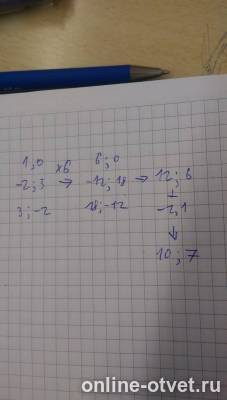 1;0 x6 6;0
-2;3 → -12;18 → 12;6
3;-2 18;-12 + -2,1
↓
10;7
online-otvet.ru